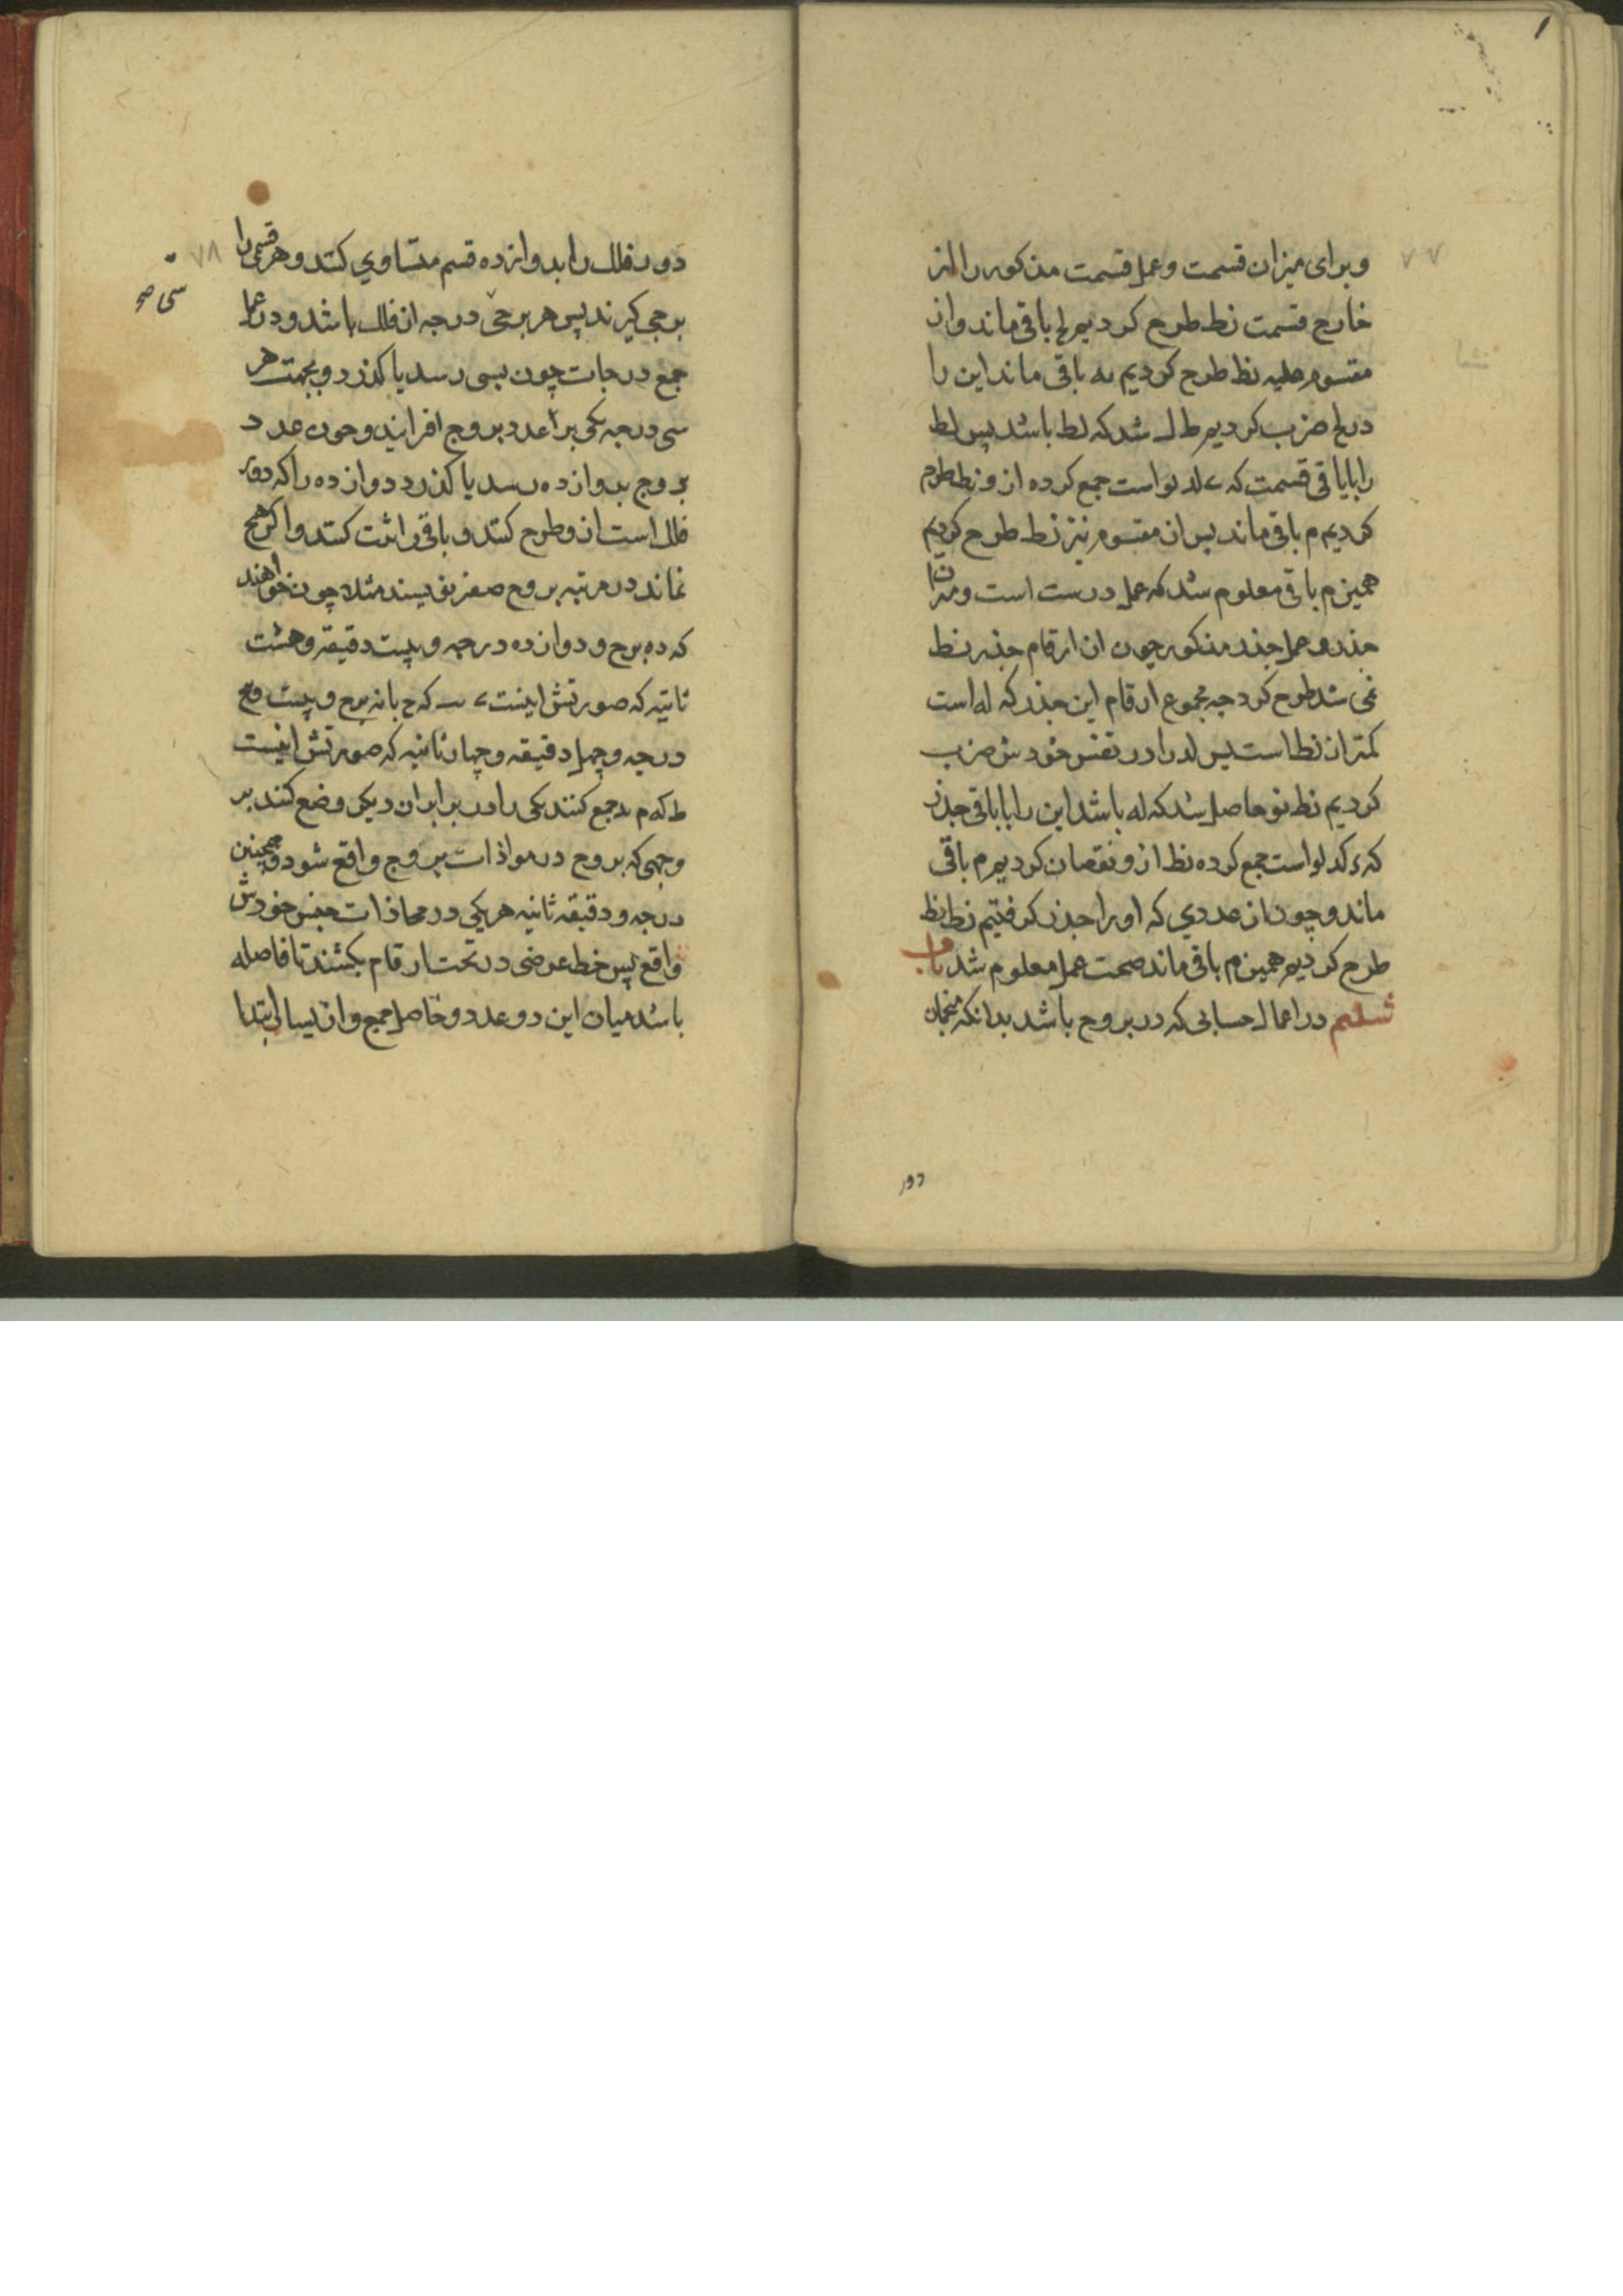 وبرای میزان قسمت وعمل قسمت مذکور را از
خارج قسمت نط طرح کردیم لح باقی ماند واز
مقسوم علیه نط طرح کردیم باقی ماند این را
در لح ضرب کردیم شد که لط باشد پس لط
را باباقی قسمت که است جمع کرده ازو نط طرح
کردیم م باقی ماند پس از مقسوم نیز نط طرح کردیم
همین م باقی معلوم شد که عمل درست است ومیزان
جذر وعمل جذر مذکور چون از ارقام جذر نط
نمی شد طرح کرد چه مجموع ارقام این جذر که له است
کمتر از نط است پس له را در نفس خودش ضرب
کردیم حاصل شد که له باشد این را باباقی جذر
که است جمع کرده نط ازو نقصان کردیم م باقی
ماند وچون از عددی که اورا جذر گرفتیم نط نط
طرح کردیم همین م باقی ماند صحت عمل معلوم شد باب
ششم در اعمال حسابی که در بروج باشد بدانکه منجمان
دور
۷۷
دور فلک را بدوازده قسم متساوی کنند وهر قسمی را
برجی گیرند پس هر برجی درجه از فلک باشد ودر عمل
جمع درجات چون بسی رسد یا گذرد وبجهت هر
سی درجه یکی بر اعدد بروج افزایند وچون عدد
بروج بدوازده رسد یا گذرد دوازده را که دور
فلک است ازو طرح کنند وباقی را ثبت کنند واگر هیچ
نماند در مرتبه بروج صفر نویسند مثلا چون خواهند
که ده برج ودوازده درجه وبیست دقیقه وهشت
ثانیه که صورتش اینست ی یب ک ح بانه برج وبیست وپنج
درجه وچهل دقیقه وچهار ثانیه که صورتش اینست
ط که م د جمع کنند یکی را در برابر آن دیگر وضع کنند بر
وجهی که بروج در موازات بروج واقع شود وهمچنین
درجه ودقیقه ثانیه هریکی در محاذات جنس خودش
واقع پس خط عرضی در تحت ارقام بکشند تا فاصله
باشد میان این دو عدد وحاصل جمع واز یسار ابتدا
۷۸
سی صح